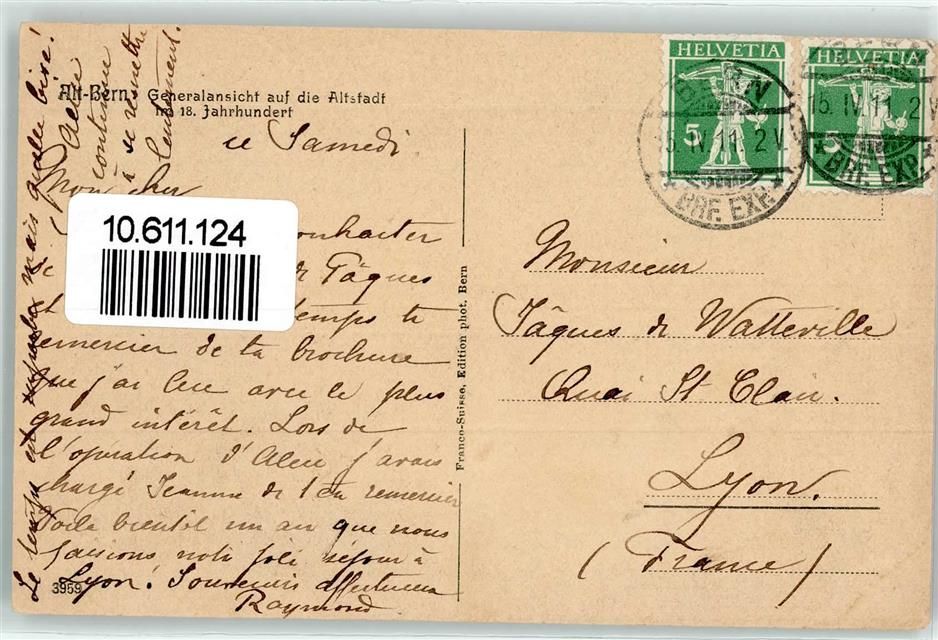 Alt-Bern. Generalansicht auf die Altstadt
im 18. Jahrhundert
HELVETIA
5
HELVETIA
5
BERN
15. IV. 11. 2 V.
BRF. EXP.
15. IV. 11. 2 V.
BRF. EXP.
ce Samedi
Mon cher
10.611.124
souhaiter
de Pâques
temps te
remercier de ta brochure
que j'ai lue avec le plus
grand intérêt. Lors de
l'opération d'Alec j'avais
chargé Jeanne de t'en remercier
Voilà bientôt un an que nous
faisions notre joli séjour à
Lyon! Souvenirs affectueux
Raymond
Le temps est mais quelle bise!
continue
à se remettre
lentement.
3959
Franco-Suisse, Edition phot. Bern
Monsieur
Jâques de Watteville
Quai St Clair.
Lyon.
(France)